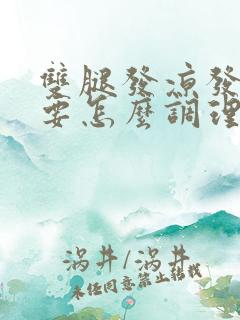 雙腿發涼發
要怎麼調理
涡井/涡井
未经同意禁止转载